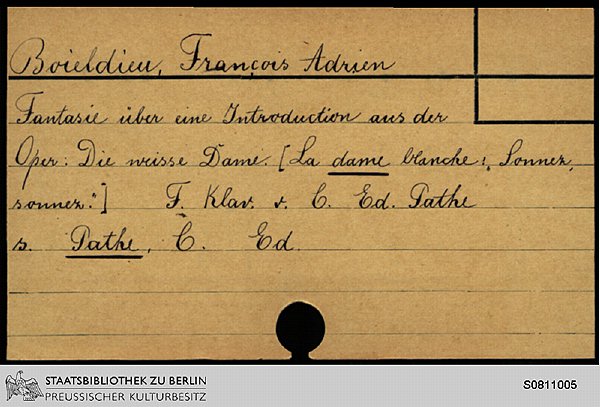 Boieldieu, François Adrien
Fantasie über eine Introduction aus der
Oper: Die weisse Dame. [La dame blanche: „Sonnez,
sonnez."] F. Klav. v. C. Ed. Pathe
s. Pathe, C. Ed.
STAATSBIBLIOTHEK ZU BERLIN
PREUSSISCHER KULTURBESITZ
S0811005